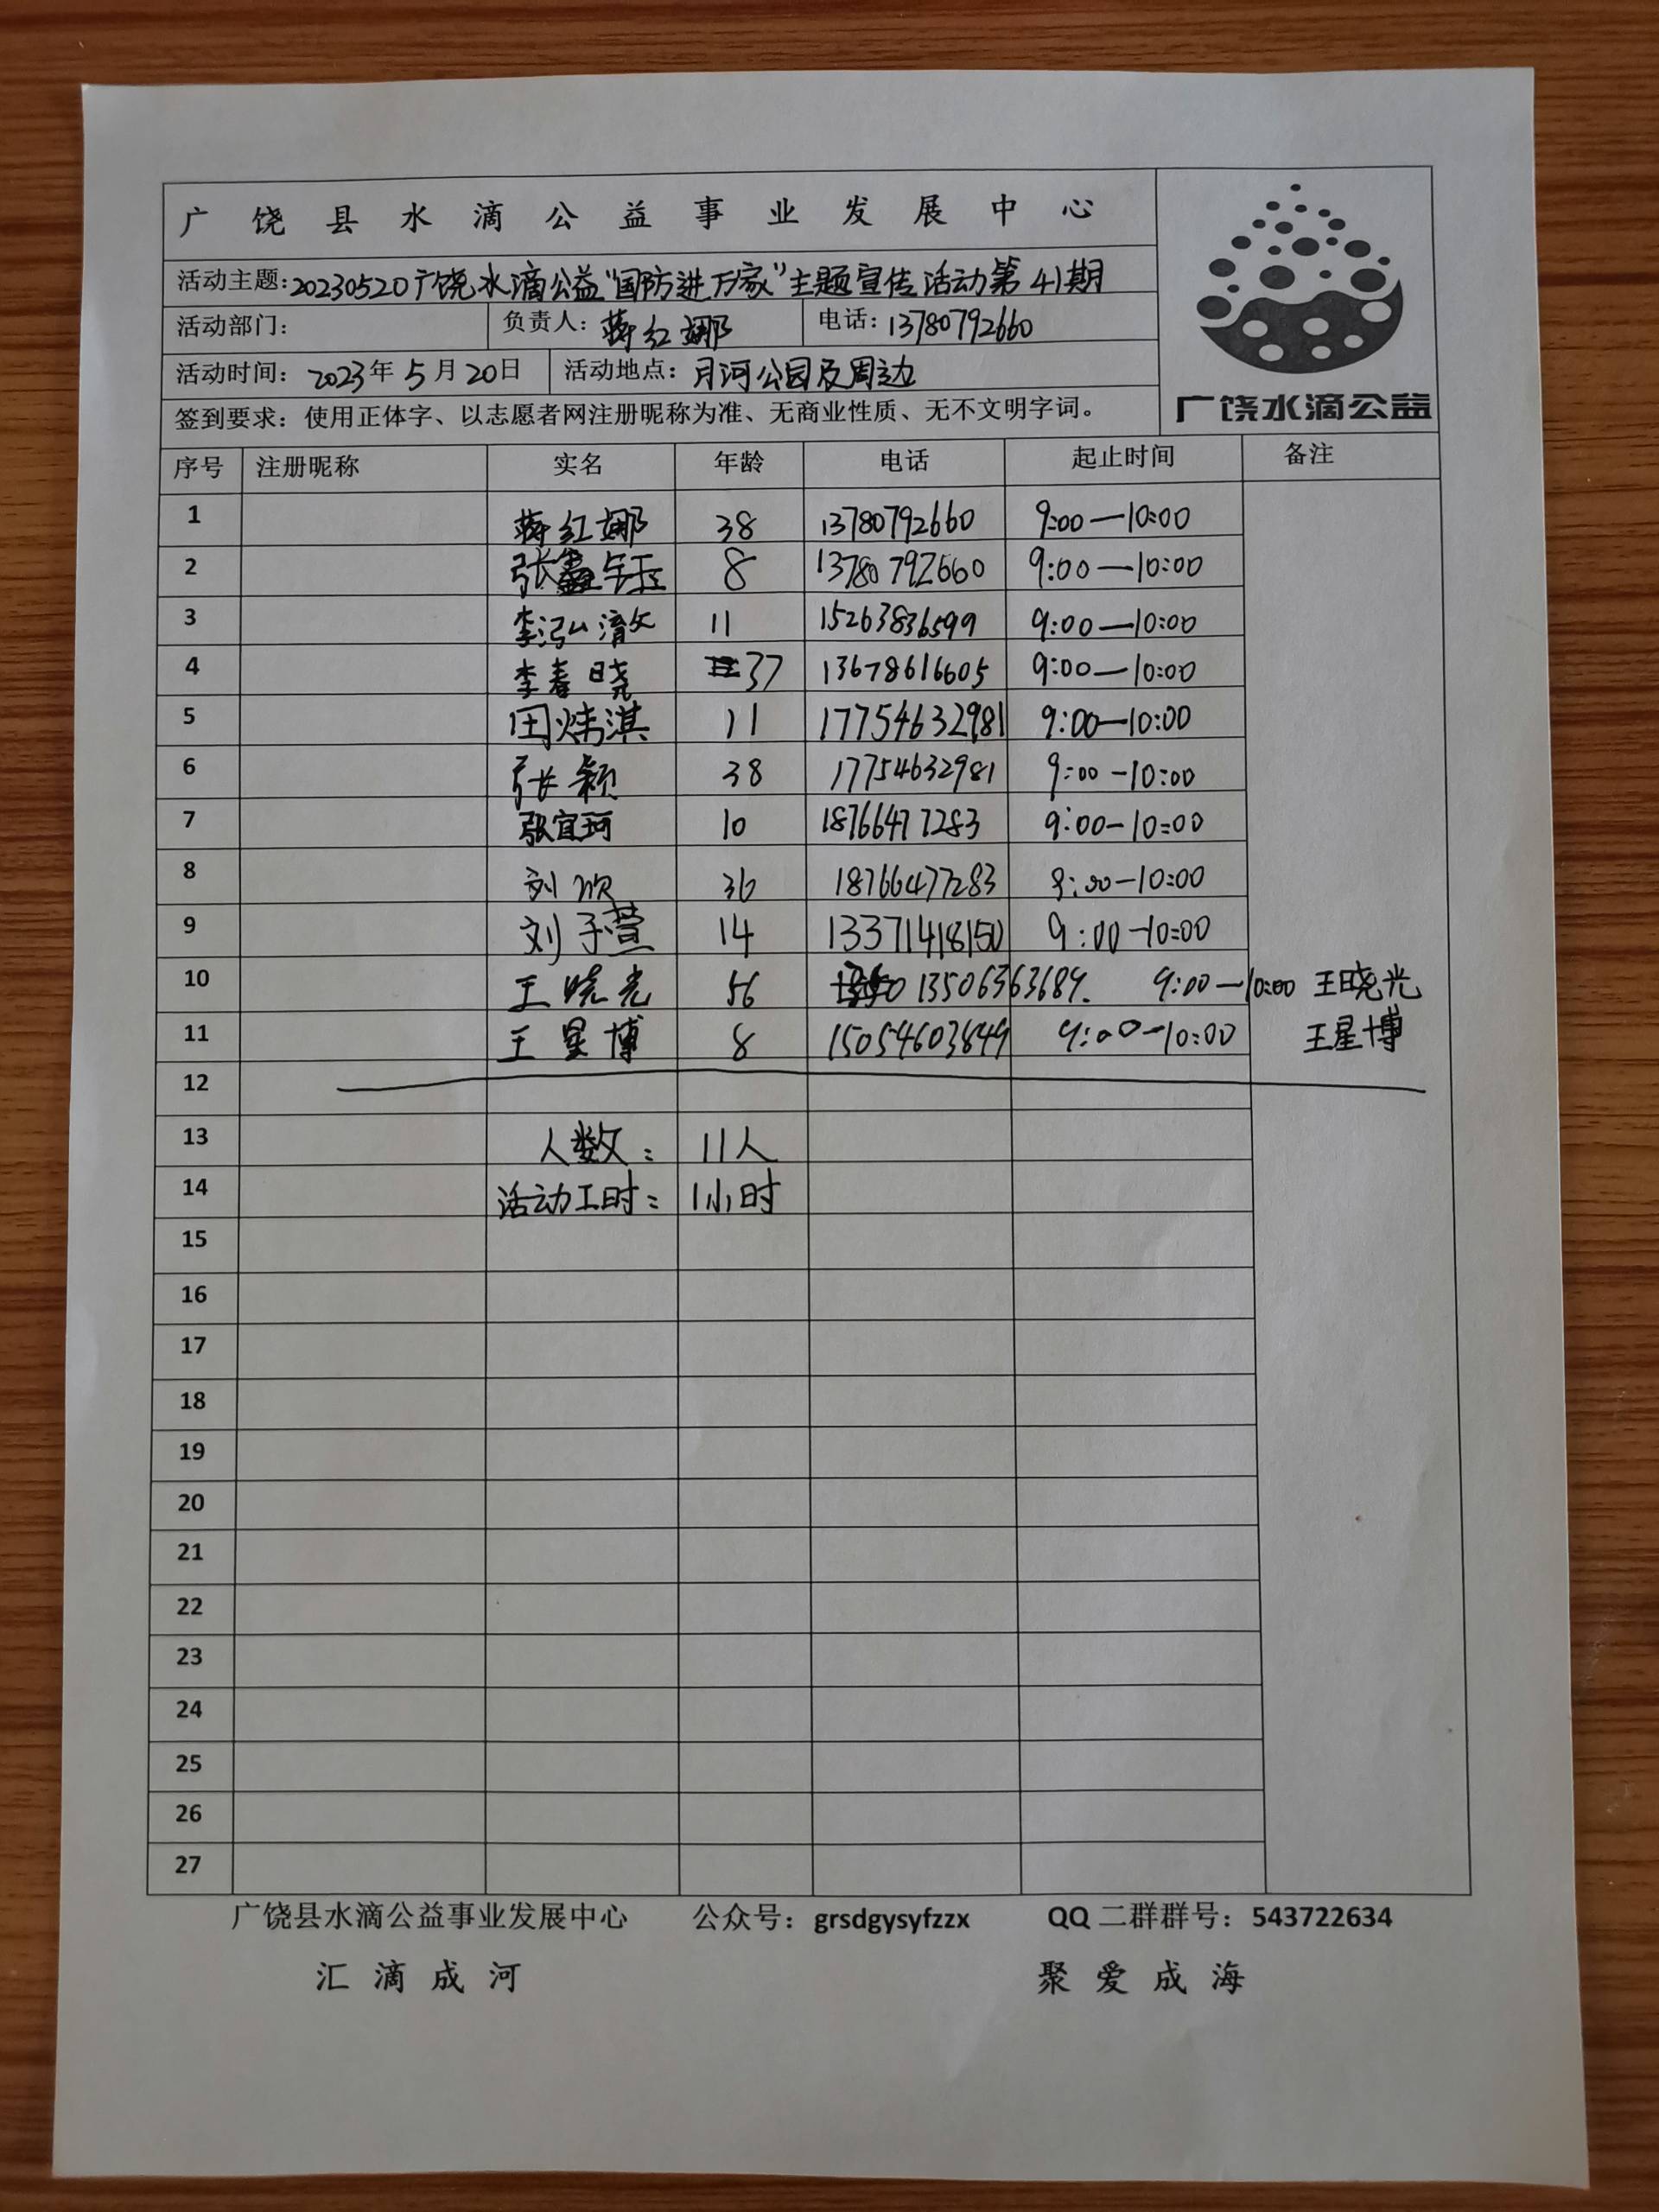 广饶县水滴公益事业发展中心
活动主题:20230520广饶水滴公益"国防进万家"主题宣传活动第41期
活动部门: 负责人: 蒋红娜 电话: 13780792660
活动时间: 2023年5月20日 活动地点: 月河公园及周边
广饶水滴公益
签到要求: 使用正体字、以志愿者网注册昵称为准、无商业性质、无不文明字词。
序号 注册昵称 实名 年龄 电话 起止时间 备注
1 蒋红娜 38 13780792660 9:00—10:00
2 张鑫钰 8 13780792660 9:00—10:00
3 李泓淯 11 15263836599 9:00—10:00
4 李春晓 37 13678616605 9:00—10:00
5 田炜淇 11 17754632981 9:00—10:00
6 张颖 38 17754632981 9:00-10:00
7 张宜珂 10 18766477283 9:00-10:00
8 刘欣 36 18766477283 9:00-10:00
9 刘子萱 14 13371418150 9:00-10:00
10 王晓光 56 13506363689. 9:00—10:00 王晓光
11 王星博 8 15054603849 9:00-10:00 王星博
12
13 人数: 11人
14 活动工时: 1小时
15
16
17
18
19
20
21
22
23
24
25
26
27
广饶县水滴公益事业发展中心 公众号: grsdgysyfzzx QQ二群群号: 543722634
汇滴成河 聚爱成海